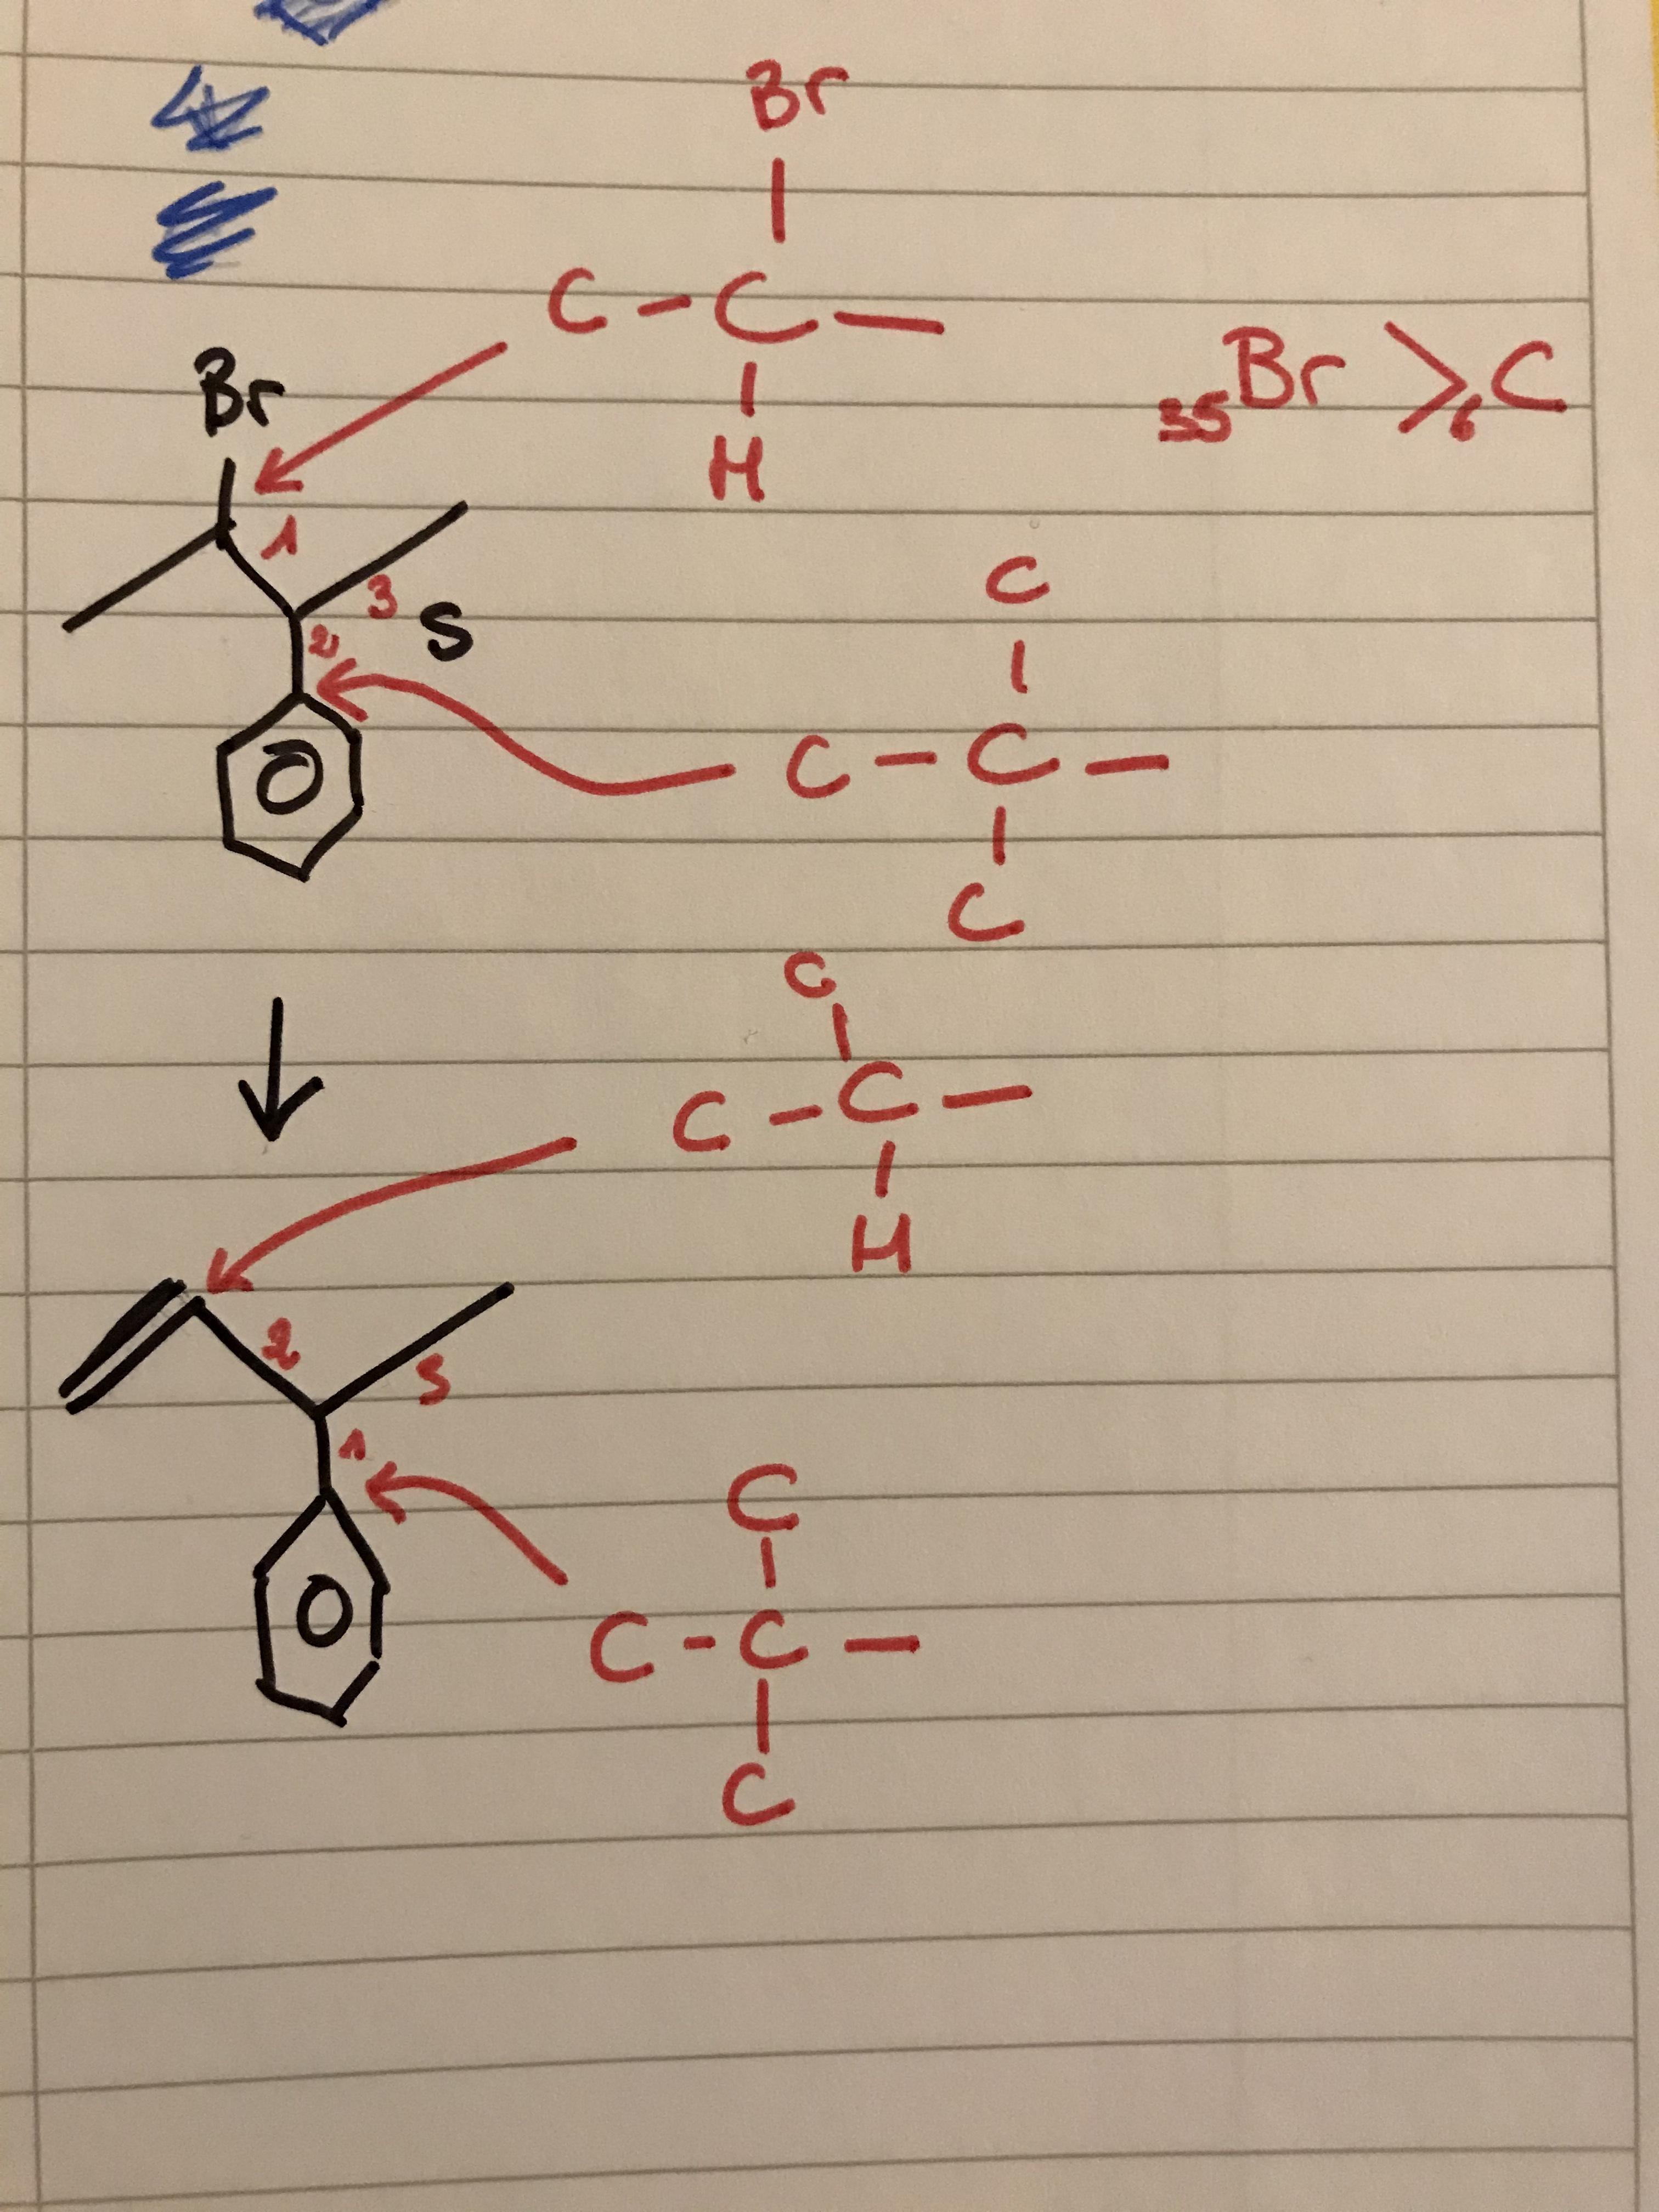 Br
C - C -
H
35Br > 6C
Br
1
3
S
2
C
C - C -
C
C
C - C -
H
2
3
1
C
C - C -
C